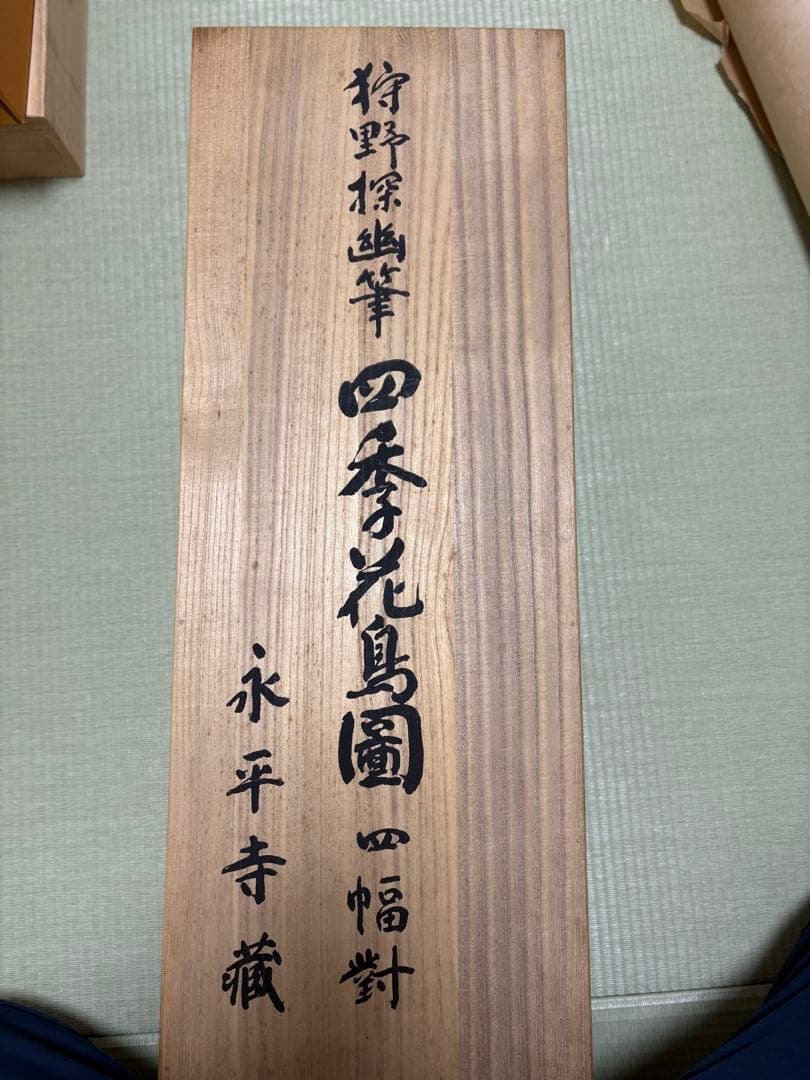 狩野探幽筆 四季花鳥圖 四幅對
永平寺藏